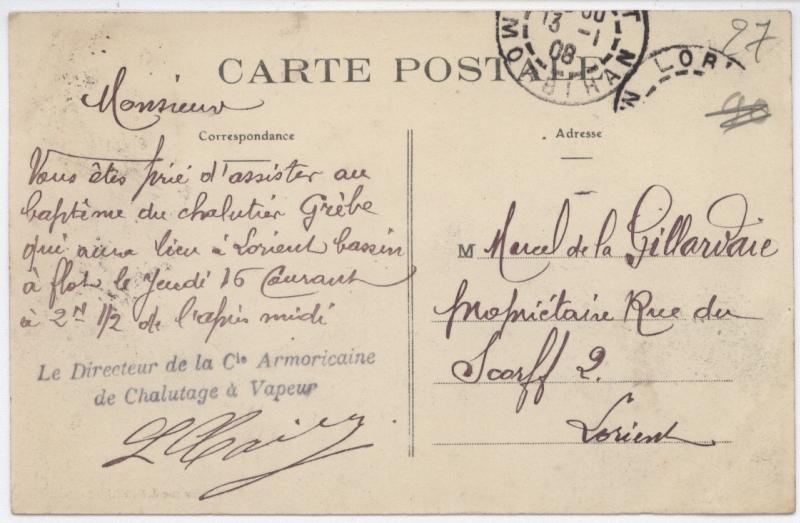 27
13 -1
08
MORBIHAN
LORI
CARTE POSTALE
Monsieur
Correspondance
Vous êtes prié d'assister au
baptême du chalutier Grèbe
qui aura lieu à Lorient bassin
à flot le Jeudi 16 Courant
à 2H 1/2 de l'après midi
Le Directeur de la Cie Armoricaine
de Chalutage à Vapeur
Adresse
M Marcel de la Gillardaie
propriétaire Rue du
Scorff 2.
Lorient